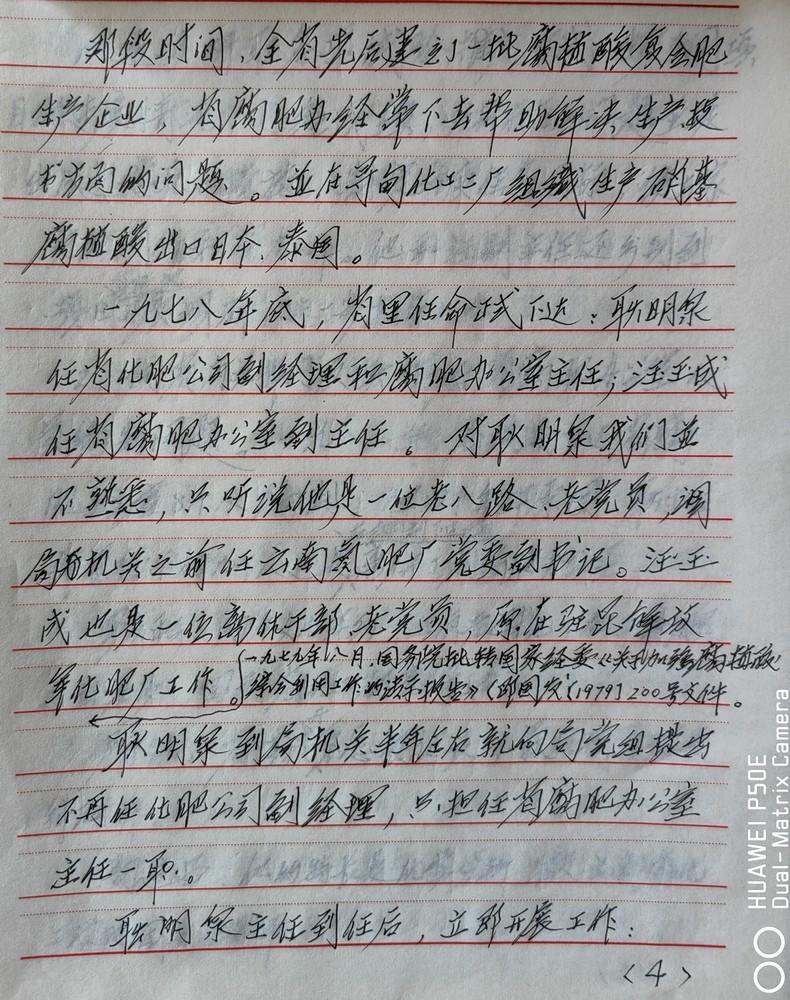 那段时间，全省先后建立了一批腐植酸复合肥
生产企业，省腐肥办经常下去帮助解决生产技
术方面的问题。並在寻甸化工二厂组织生产硝基
腐植酸出口日本、泰国。
一九七八年底，省里任命正式下达：耿明保
任省化肥公司副经理和腐肥办公室主任；汪玉成
任省腐肥办公室副主任。对耿明保我们並
不熟悉，只听说他是一位老八路、老党员，调
局机关之前任云南氮肥厂党委副书记。汪玉
成也是一位离休干部、老党员，原在驻昆解放
军化肥厂工作。
一九七九年八月，国务院批转国家经委《关于加强腐植酸
综合利用工作的请示报告》（即国发〔1979〕200号文件。
耿明保到局机关半年左右就向局党组提出
不再任化肥公司副经理，只担任省腐肥办公室
主任一职。
耿明保主任到任后，立即开展工作：
〈4〉
HUAWEI P50E
Dual-Matrix Camera